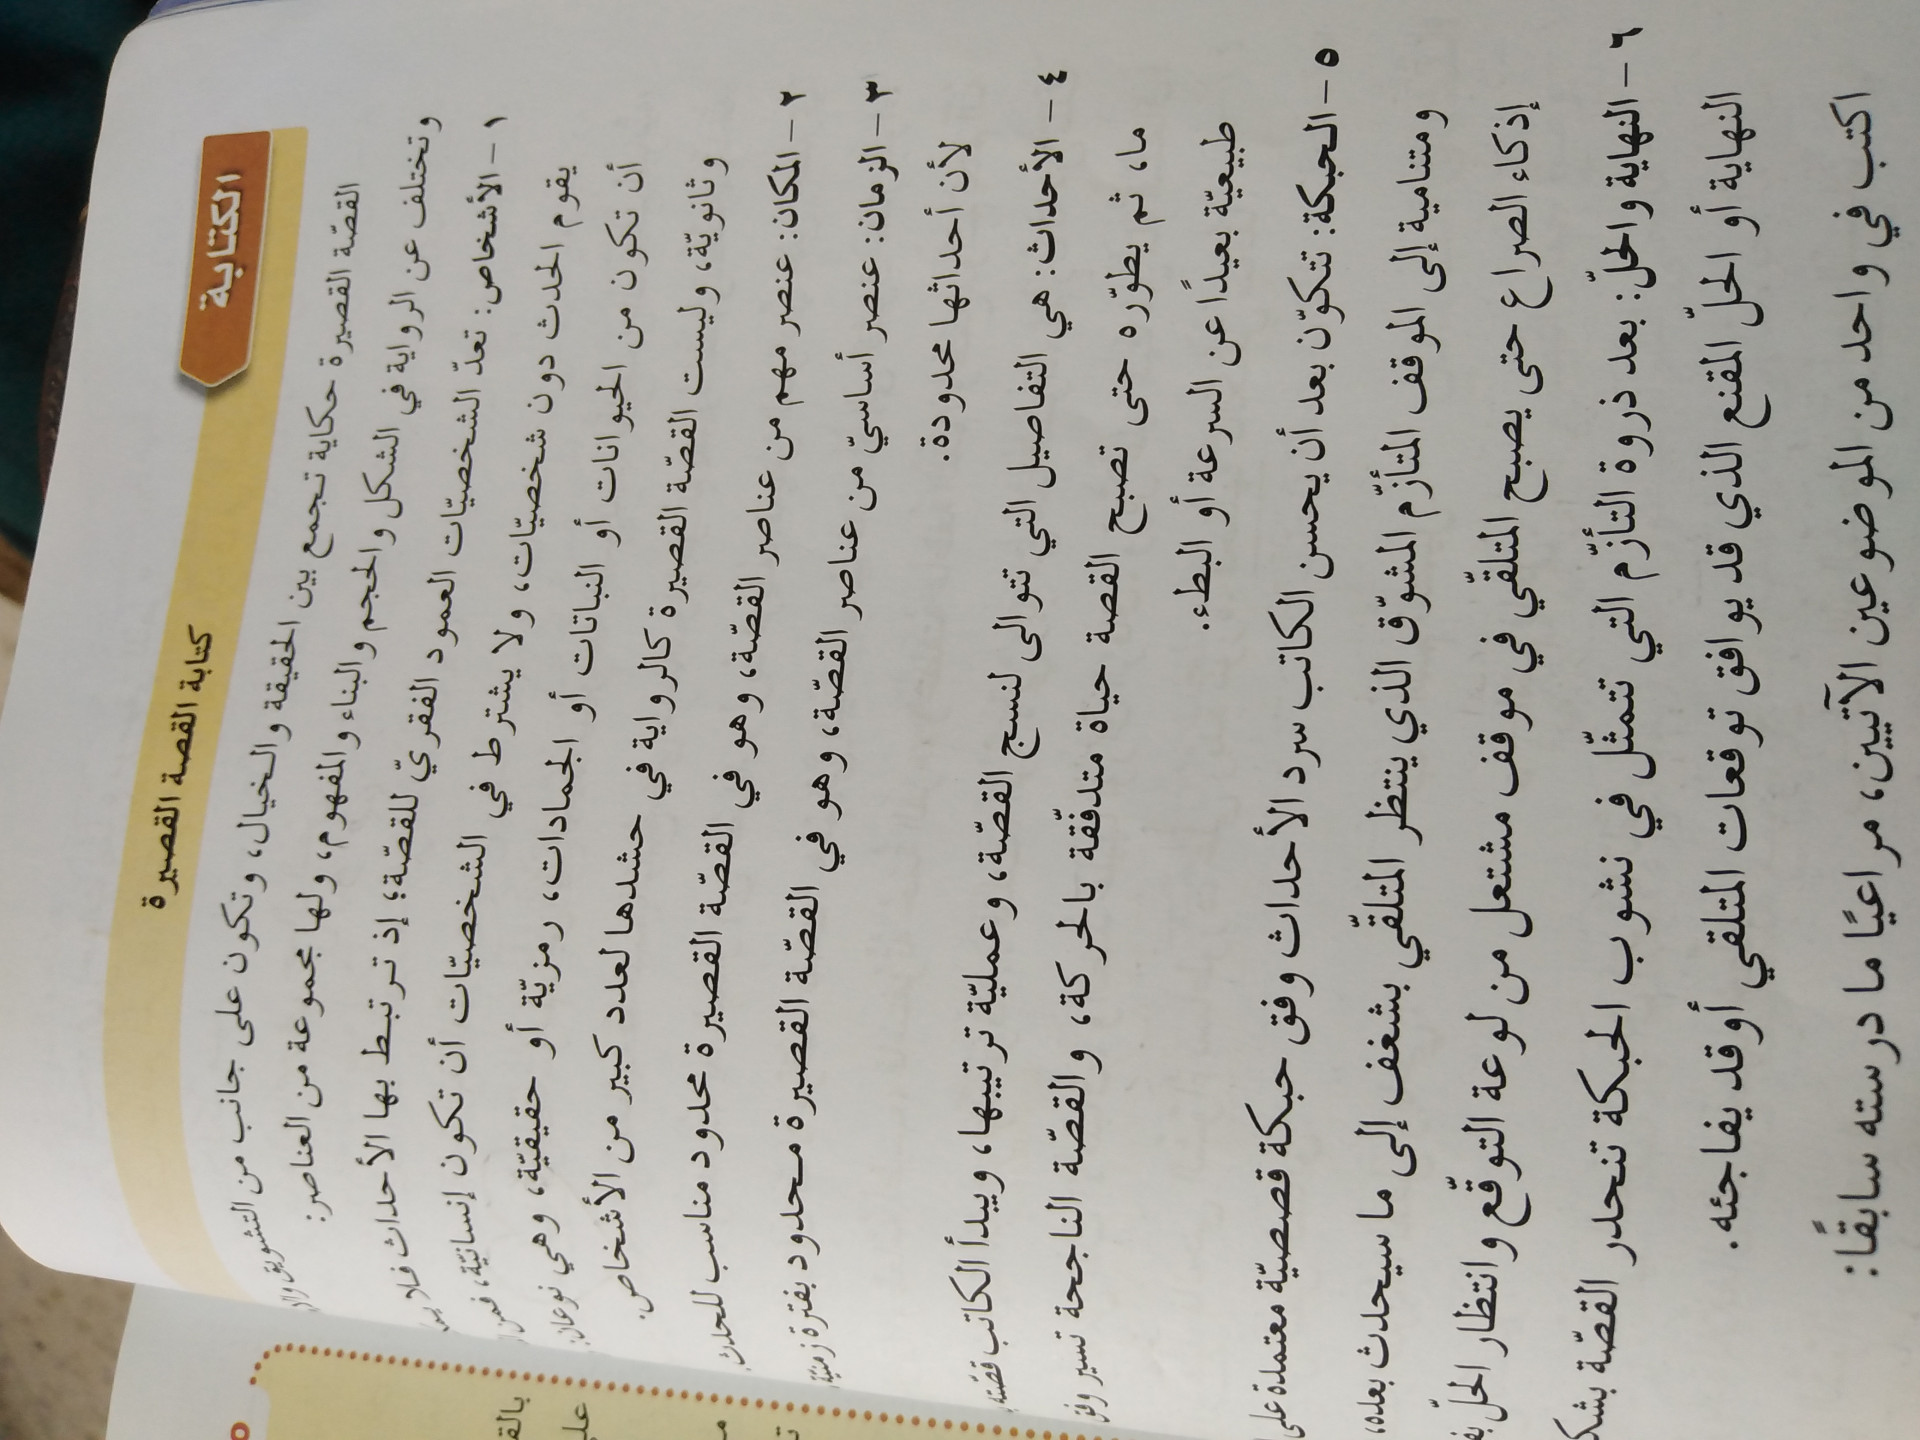 الكتابة
كتابة القصة القصيرة
القصّة القصيرة حكاية تجمع بين الحقيقة والخيال، وتكون على جانب من التشويق
وتختلف عن الرواية في الشكل والحجم والبناء والمفهوم، ولها مجموعة من العناصر:
١- الأشخاص: تعدّ الشخصيّات العمود الفقريّ للقصّة؛ إذ ترتبط بها الأحداث فلا
يقوم الحدث دون شخصيّات، ولا يشترط في الشخصيّات أن تكون إنسانيّة،
أن تكون من الحيوانات أو النباتات أو الجمادات، رمزيّة أو حقيقيّة، وهي نوعان:
وثانويّة، وليست القصّة القصيرة كالرواية في حشدها لعدد كبير من الأشخاص.
٢- المكان: عنصر مهم من عناصر القصّة، وهو في القصّة القصيرة محدود مناسب للحدث.
٣- الزمان: عنصر أساسيّ من عناصر القصّة، وهو في القصّة القصيرة محدود بفترة زمنيّة
لأن أحداثها محدودة.
٤- الأحداث: هي التفاصيل التي تتوالى لنسج القصّة، وعمليّة ترتيبها، ويبدأ الكاتب قصّته
ما، ثم يطوّره حتى تصبح القصة حياة متدفّقة بالحركة، والقصّة الناجحة تسير وفق
طبيعيّة بعيدًا عن السرعة أو البطء.
٥- الحبكة: تتكوّن بعد أن يحسن الكاتب سرد الأحداث وفق حبكة قصصيّة معتمدة على
ومتنامية إلى الموقف المتأزّم المشوّق الذي ينتظر المتلقّي بشغف إلى ما سيحدث بعده،
إذكاء الصراع حتى يصبح المتلقّي في موقف مشتعل من لوعة التوقّع وانتظار الحلّ
٦- النهاية والحلّ: بعد ذروة التأزّم التي تتمثّل في نشوب الحبكة تنحدر القصّة
النهاية أو الحلّ المقنع الذي قد يوافق توقعات المتلقي أوقد يفاجئه.
اكتب في واحد من الموضوعين الآتيين، مراعيًا ما درسته سابقًا: